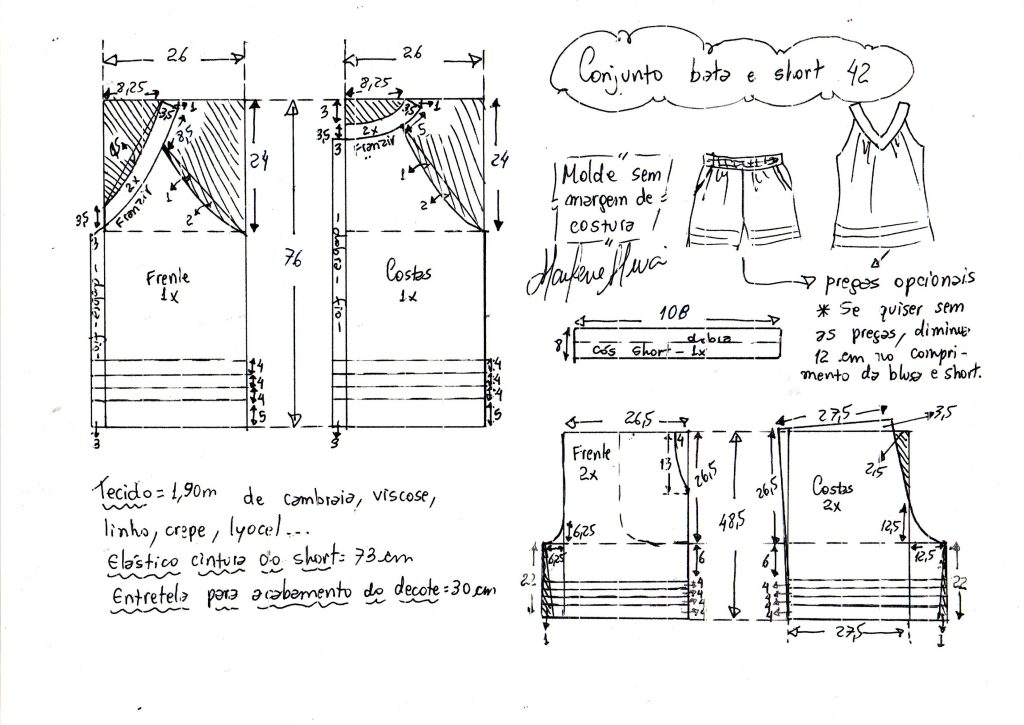 Conjunto bata e short 42
26
26
8,25
8,25
1
3,5
8,5
4,5
2x
Franzir
1
2
24
3,5
3
Frente
1x
76
4
4
4
5
3
3
3,5
3
3,5
1
5
2x
Franzir
1
2
24
Costas
1x
4
4
4
5
3
Molde sem
margem de
costura
pregas opcionais
* Se quiser sem
as pregas, diminue
12 cm no compri-
mento da blusa e short.
108
8
dobra
cós short - 1x
Tecido = 1,90m de cambraia, viscose,
linho, crepe, lyocel...
Elástico cintura do short = 73 cm
Entretela para acabamento do decote = 30 cm
26,5
Frente
2x
4
13
26,5
6,25
6,25
22
6
4
4
4
4
1
48,5
27,5
3,5
2,5
26,5
Costas
2x
12,5
12,5
6
4
4
4
4
22
27,5
1